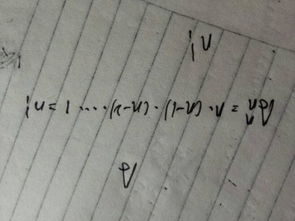 A
Aₙⁿ = n·(n-1)·(n-2)·…·1 = n!
n!